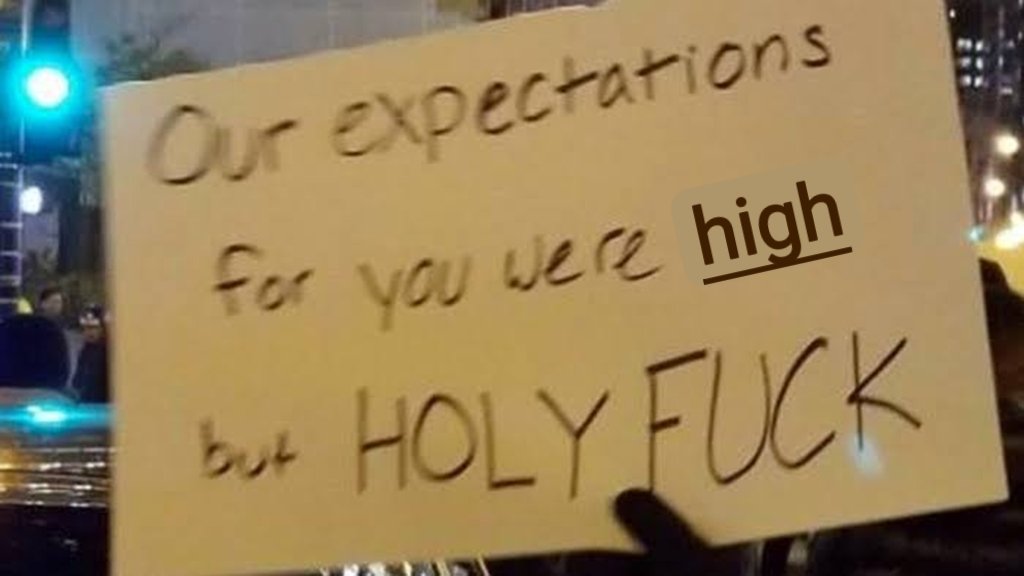 Our expectations
for you were high
but HOLY FUCK